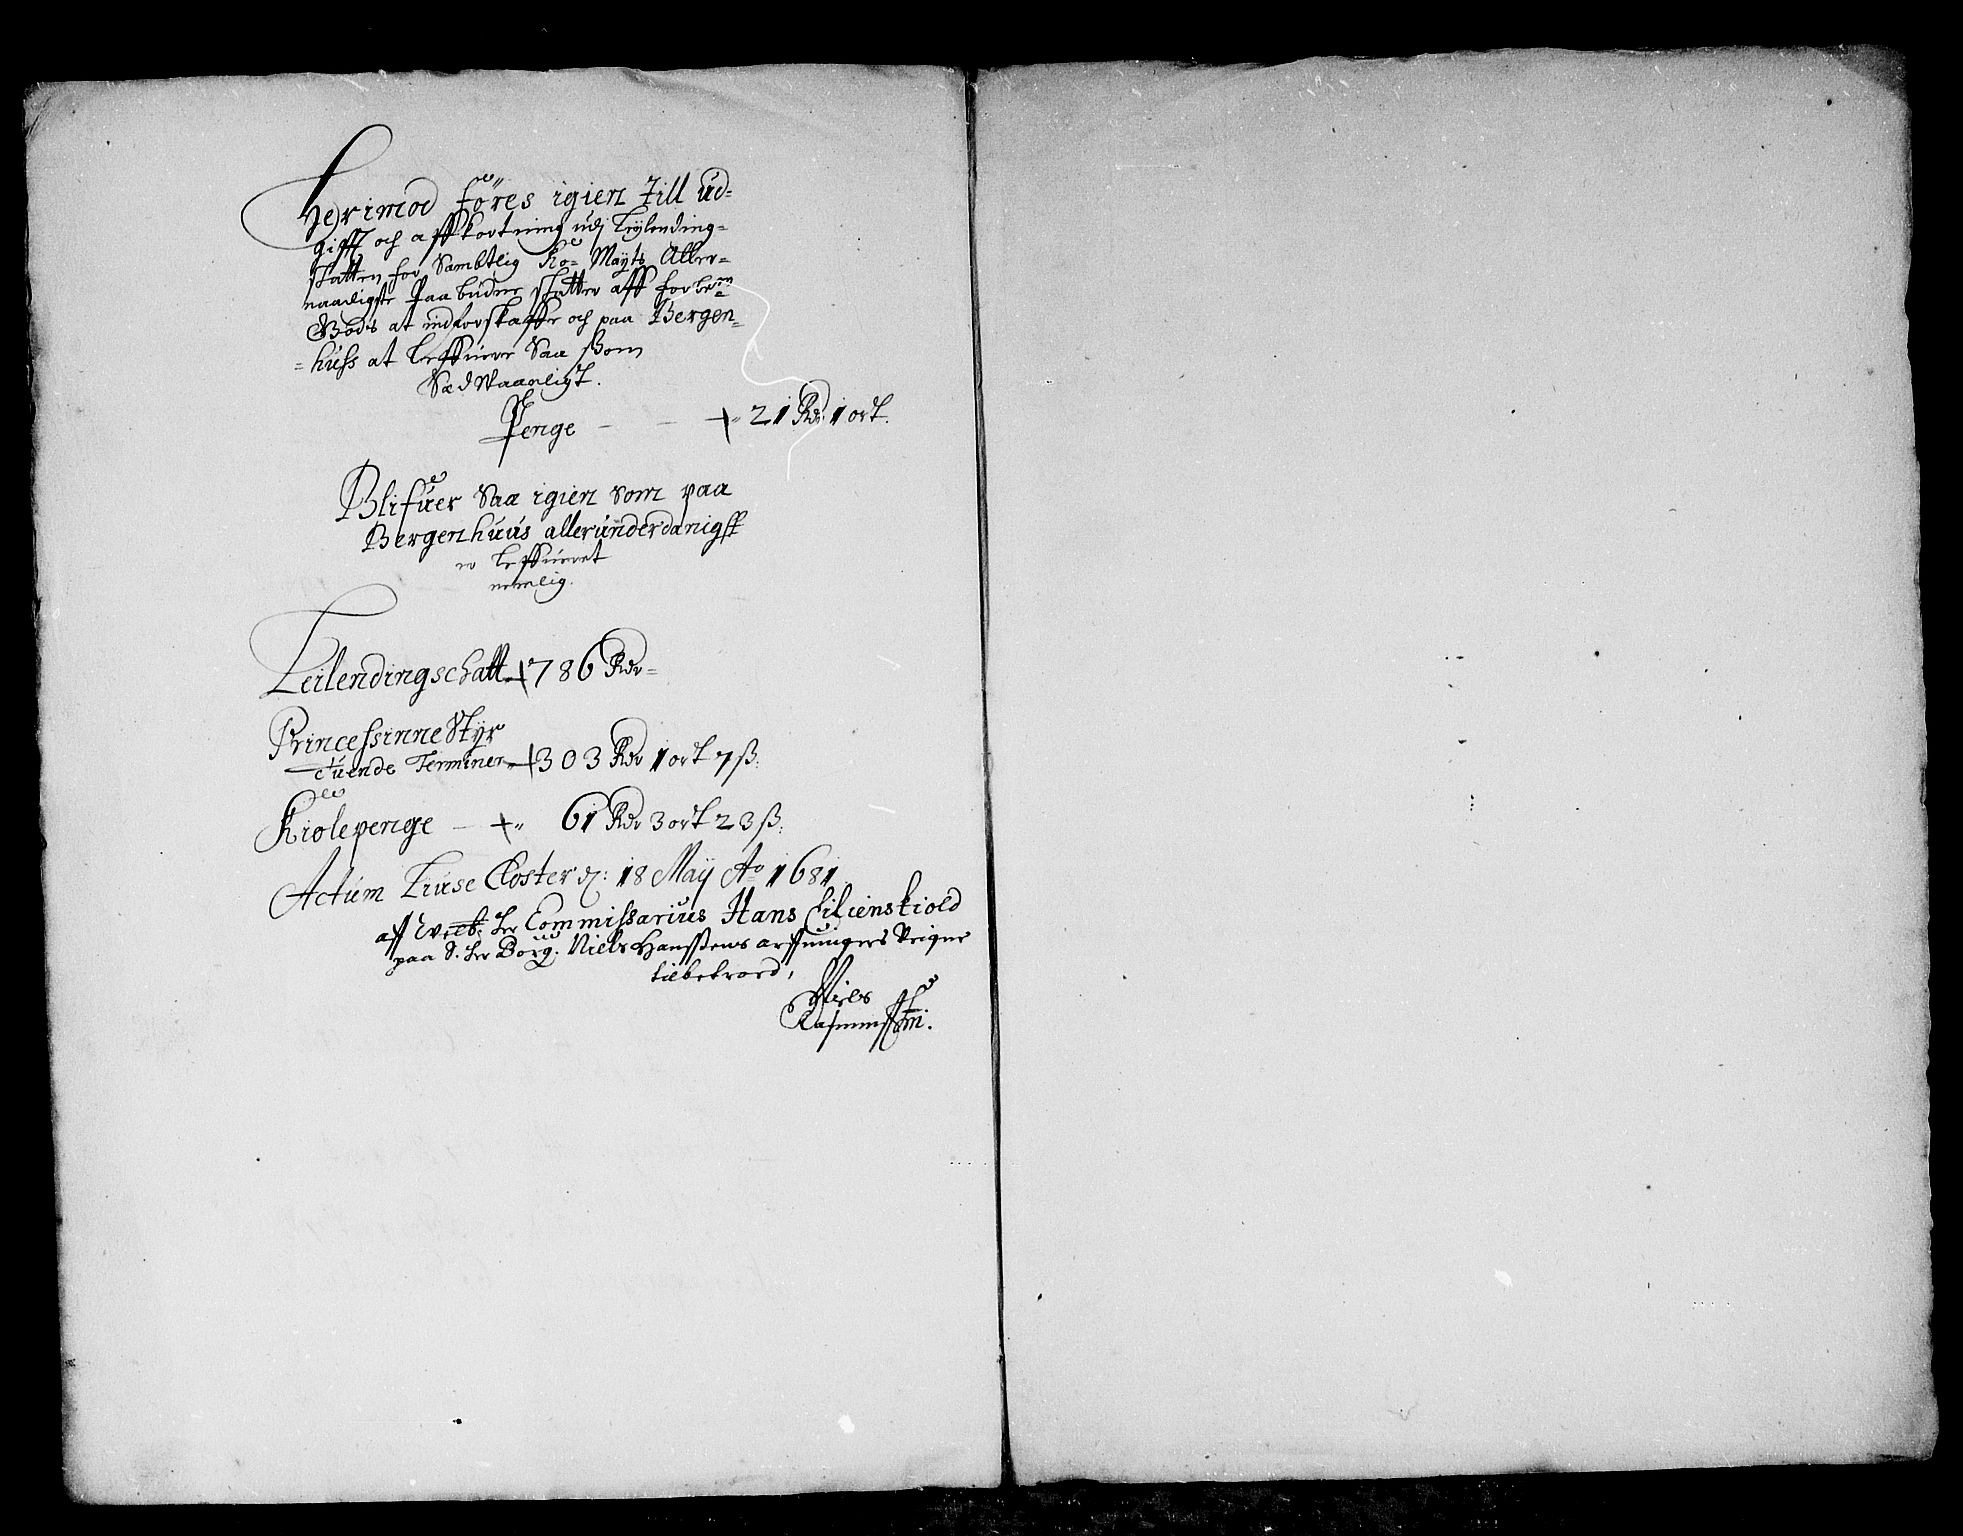 Herimod föres igien till ud-
gifft och affkortning udj Leylending-
skatten for Sambtlig Ko= Mayts Aller-
naadigste Paabudne skatter aff forbem
Gods at indforskaffe och paa Bergen-
=huss at leffuere Saa som
Sædwaanligt.
Penge — — + 21 Rdr 1 ort.
Blifuer Saa igien som paa
Bergenhuus allerunderdanigst
er leffueret
nemlig.
Leilendingschatt + 786 Rdr =
Princessinne Styr
tuende Terminer + 303 Rdr 1 ort 7 ß.
Kiolepenge — + 61 Rdr 3 ort 23 ß.
Actum Liuse Closter d: 18 Maÿ Ao 1681
aff Hr Commissarius Hans Lilienskiold
paa S. Hr Borg. Niels Hanssens arffuingers Veigne
tilbetroed,
Niels
Rasmuss